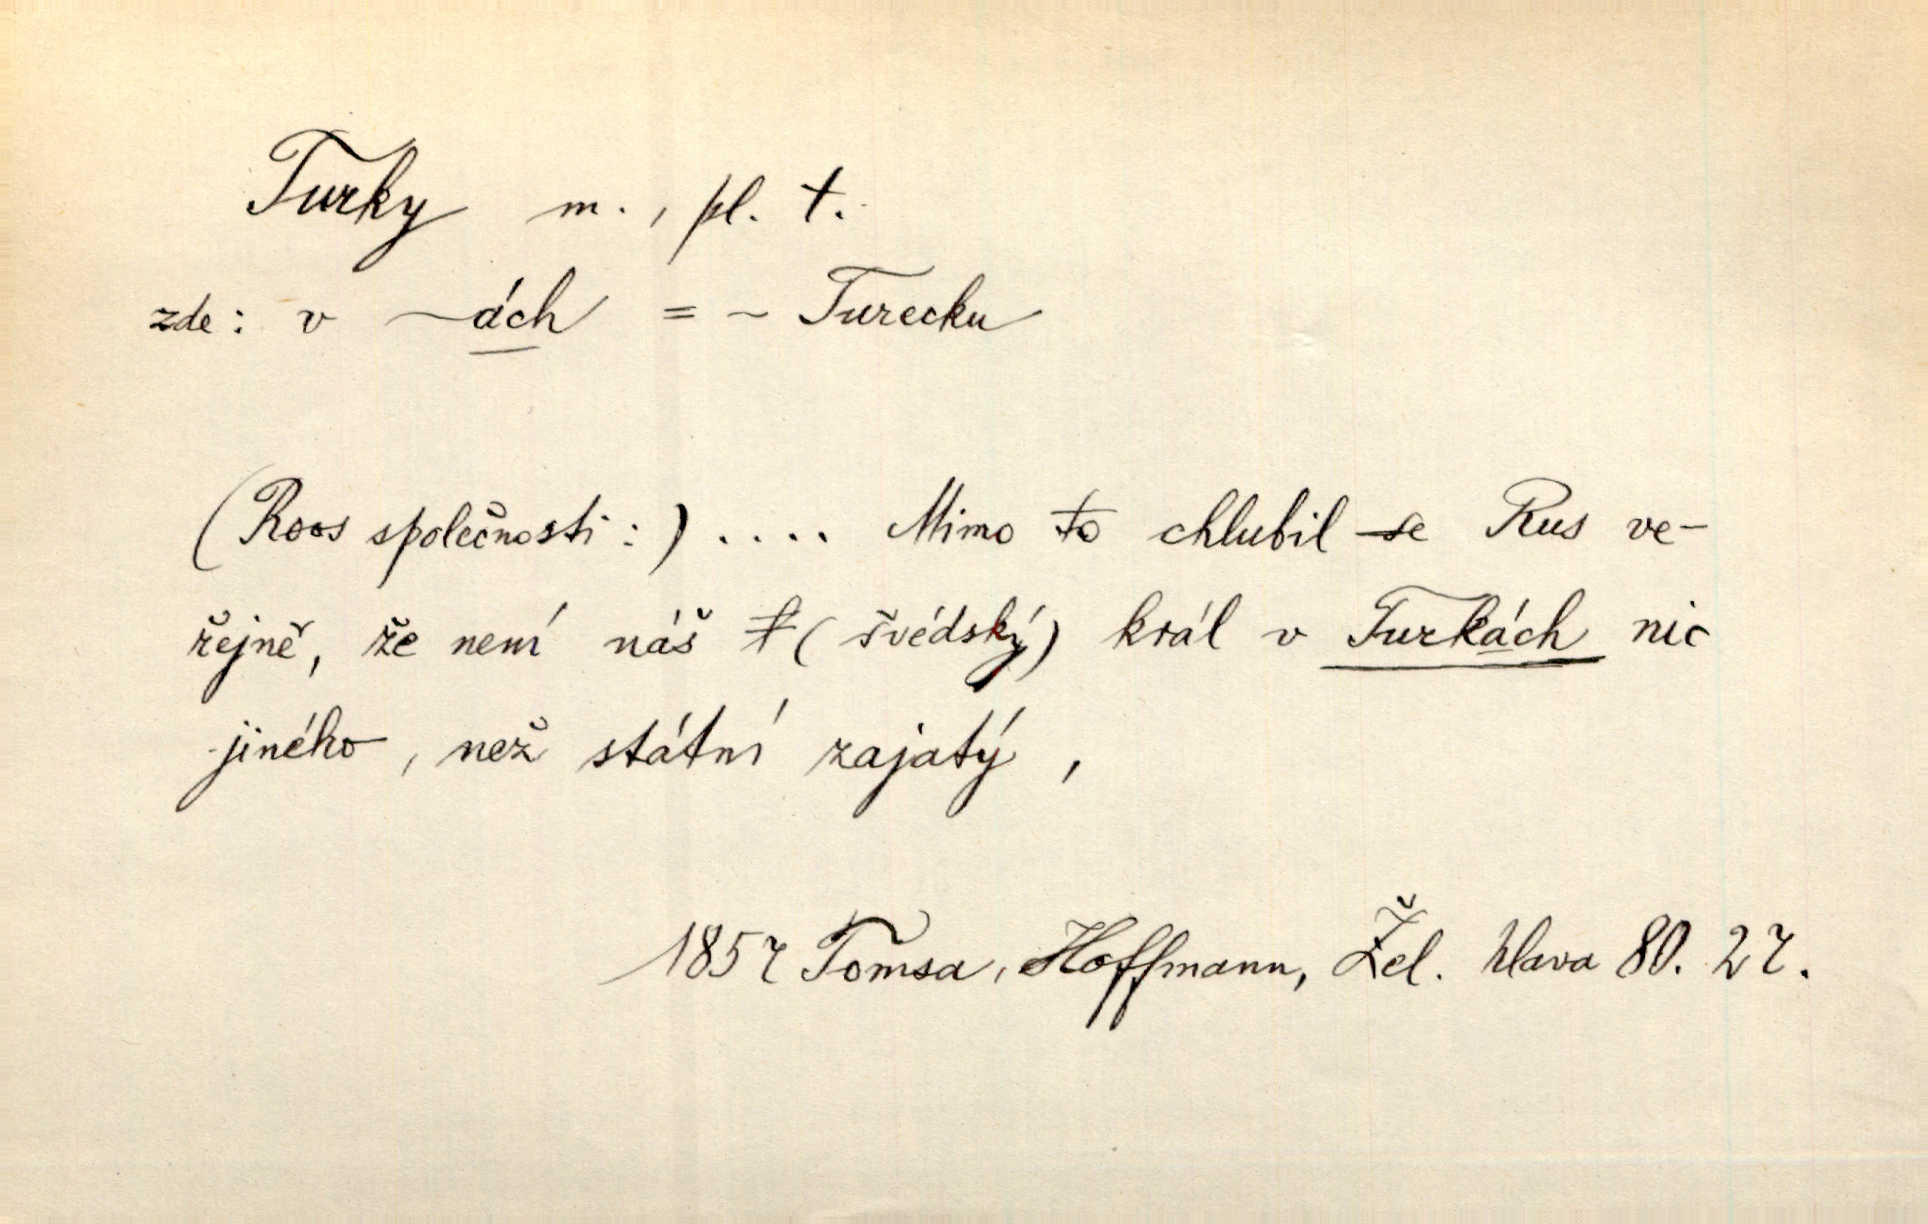 Turky m., pl. t.
zde: v ~ách = ~ Turecku
(Roos společnosti:) .... Mimo to chlubil se Rus ve-
řejně, že není náš (švédský) král v Turkách nic
jiného, než státní zajatý,
1857 Tomsa, Hoffmann, Žel. hlava 80. 27.